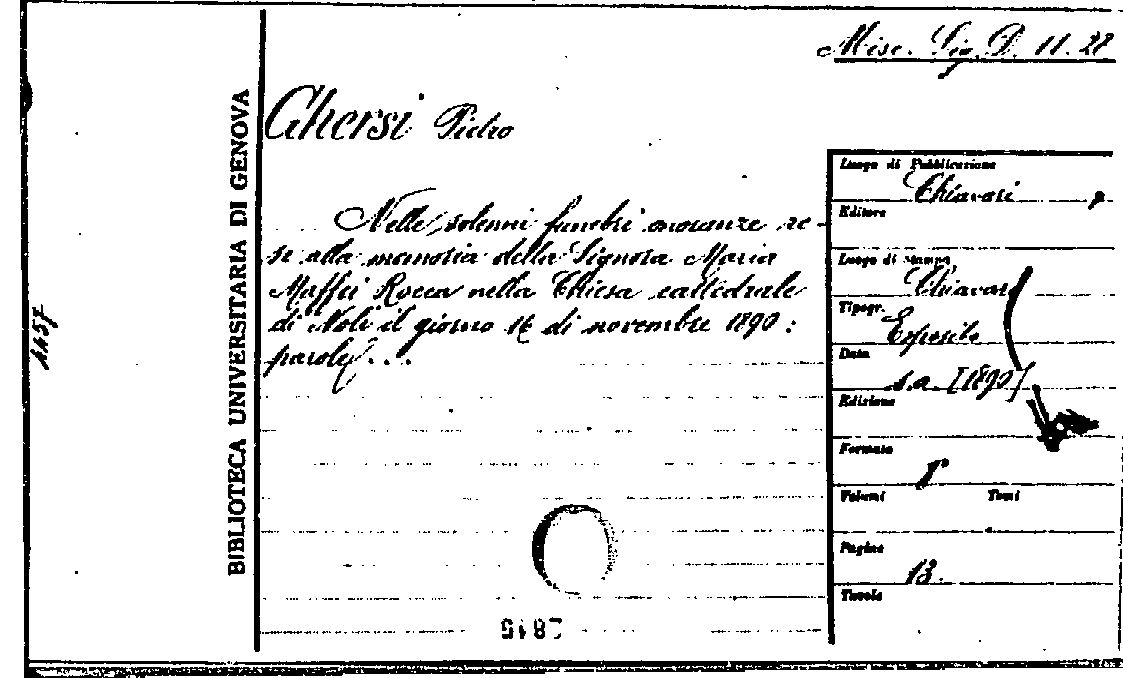 Misc. Lig. D. 11. 28
Ghersi Pietro
BIBLIOTECA UNIVERSITARIA DI GENOVA
Nelle solenni funebri onoranze re-
se alla memoria della Signora Maria
Maffei Rocca nella Chiesa cattedrale
di Noli il giorno 16 di novembre 1890:
parole...
Luogo di Pubblicazione
Chiavari
Editore
Luogo di stampa
Chiavari
Tipogr.
Esposito
Data
s.a. [1890]
Edizione
Formato
8°
Volumi Tomi
Pagine
13.
Tavole